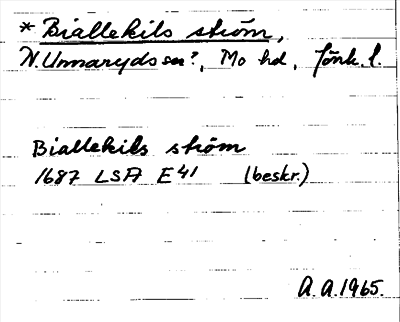 * Biallekils ström,
N. Unnaryds sn?, Mo hd, Jönk. l.
Biallekils ström
1687 LSA E41 (beskr.)
A.A. 1965.